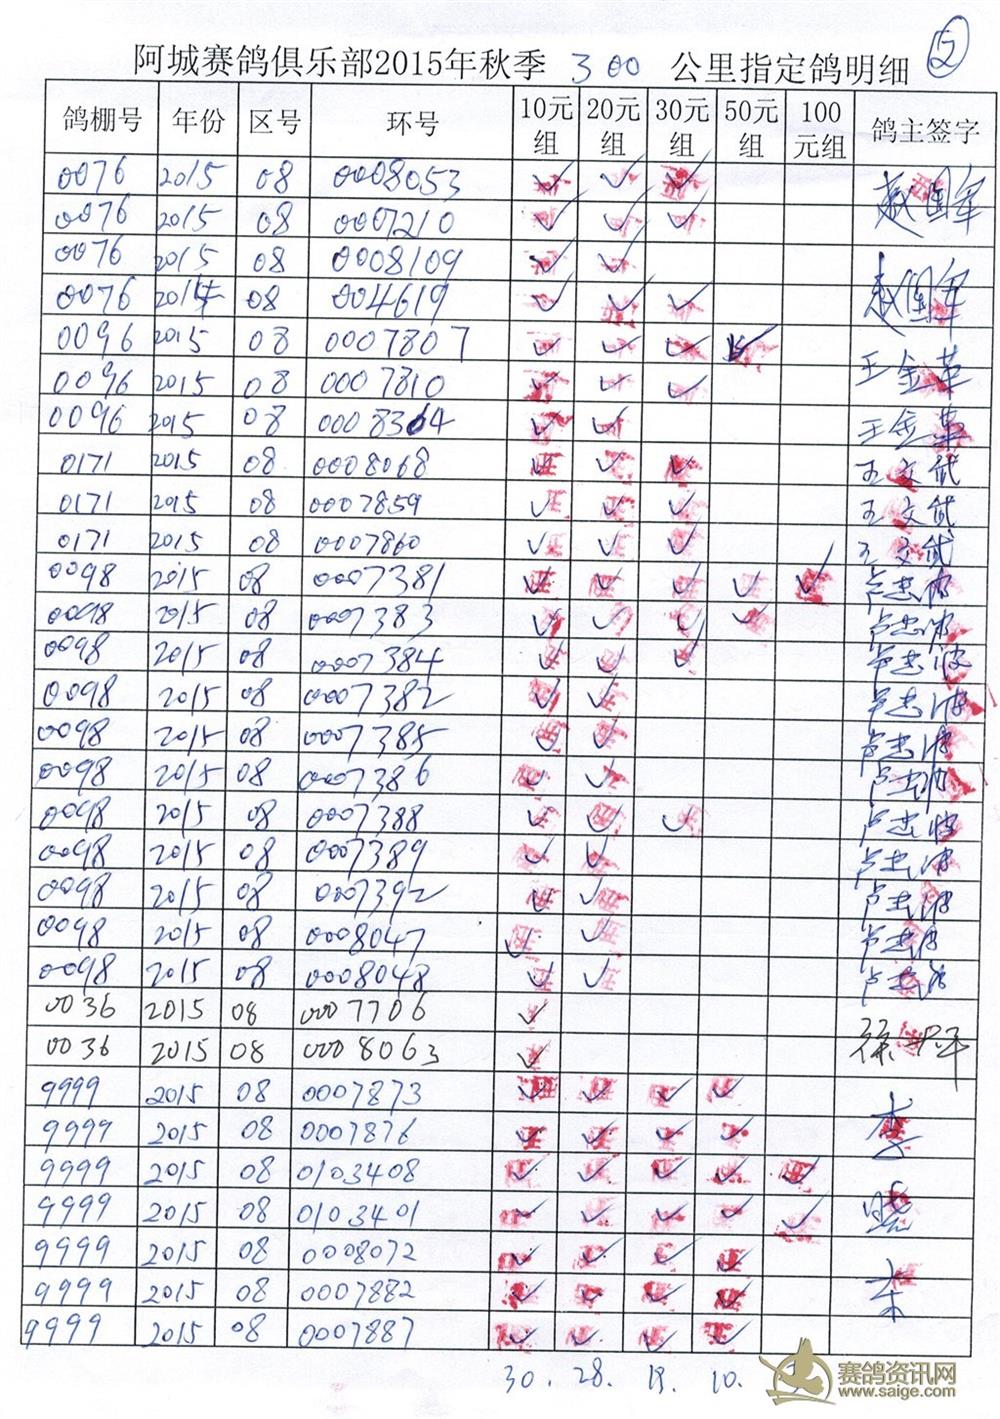 阿城赛鸽俱乐部2015年秋季 300 公里指定鸽明细 ⑤
鸽棚号 年份 区号 环号 10元组 20元组 30元组 50元组 100元组 鸽主签字
0076 2015 08 0008053 ✓ ✓ ✓ 赵国军
0076 2015 08 0007210 ✓ ✓ ✓
0076 2015 08 0008109 ✓ ✓ 赵国军
0076 2014 08 004619 ✓ ✓ ✓
0096 2015 08 0007807 ✓ ✓ ✓ ✓ 王金革
0096 2015 08 0007810 ✓ ✓ ✓
0096 2015 08 0008364 ✓ ✓ 王金革
0171 2015 08 0008068 ✓ ✓ ✓ 王文武
0171 2015 08 0007859 ✓ ✓ ✓ 王文武
0171 2015 08 0007860 ✓ ✓ ✓ 王文武
0098 2015 08 0007381 ✓ ✓ ✓ ✓ ✓ 卢志波
0098 2015 08 0007383 ✓ ✓ ✓ ✓ 卢志波
0098 2015 08 0007384 ✓ ✓ ✓ 卢志波
0098 2015 08 0007382 ✓ ✓ 卢志波
0098 2015 08 0007385 ✓ ✓ 卢志波
0098 2015 08 0007386 ✓ ✓ 卢志波
0098 2015 08 0007388 ✓ ✓ ✓ 卢志波
0098 2015 08 0007389 ✓ ✓ 卢志波
0098 2015 08 0007392 ✓ ✓ 卢志波
0098 2015 08 0008047 ✓ ✓ 卢志波
0098 2015 08 0008048 ✓ ✓ 卢志波
0036 2015 08 0007706 ✓
0036 2015 08 0008063 ✓
9999 2015 08 0007873 ✓ ✓ ✓ ✓ 李
9999 2015 08 0007876 ✓ ✓ ✓ ✓
9999 2015 08 0103408 ✓ ✓ ✓ ✓ ✓
9999 2015 08 0103401 ✓ ✓ ✓ ✓ ✓ 晓
9999 2015 08 0008072 ✓ ✓ ✓ ✓
9999 2015 08 0007882 ✓ ✓ ✓ ✓ 本
9999 2015 08 0007887 ✓ ✓ ✓ ✓
30. 28. 18. 10.
赛鸽资讯网
www.saige.com